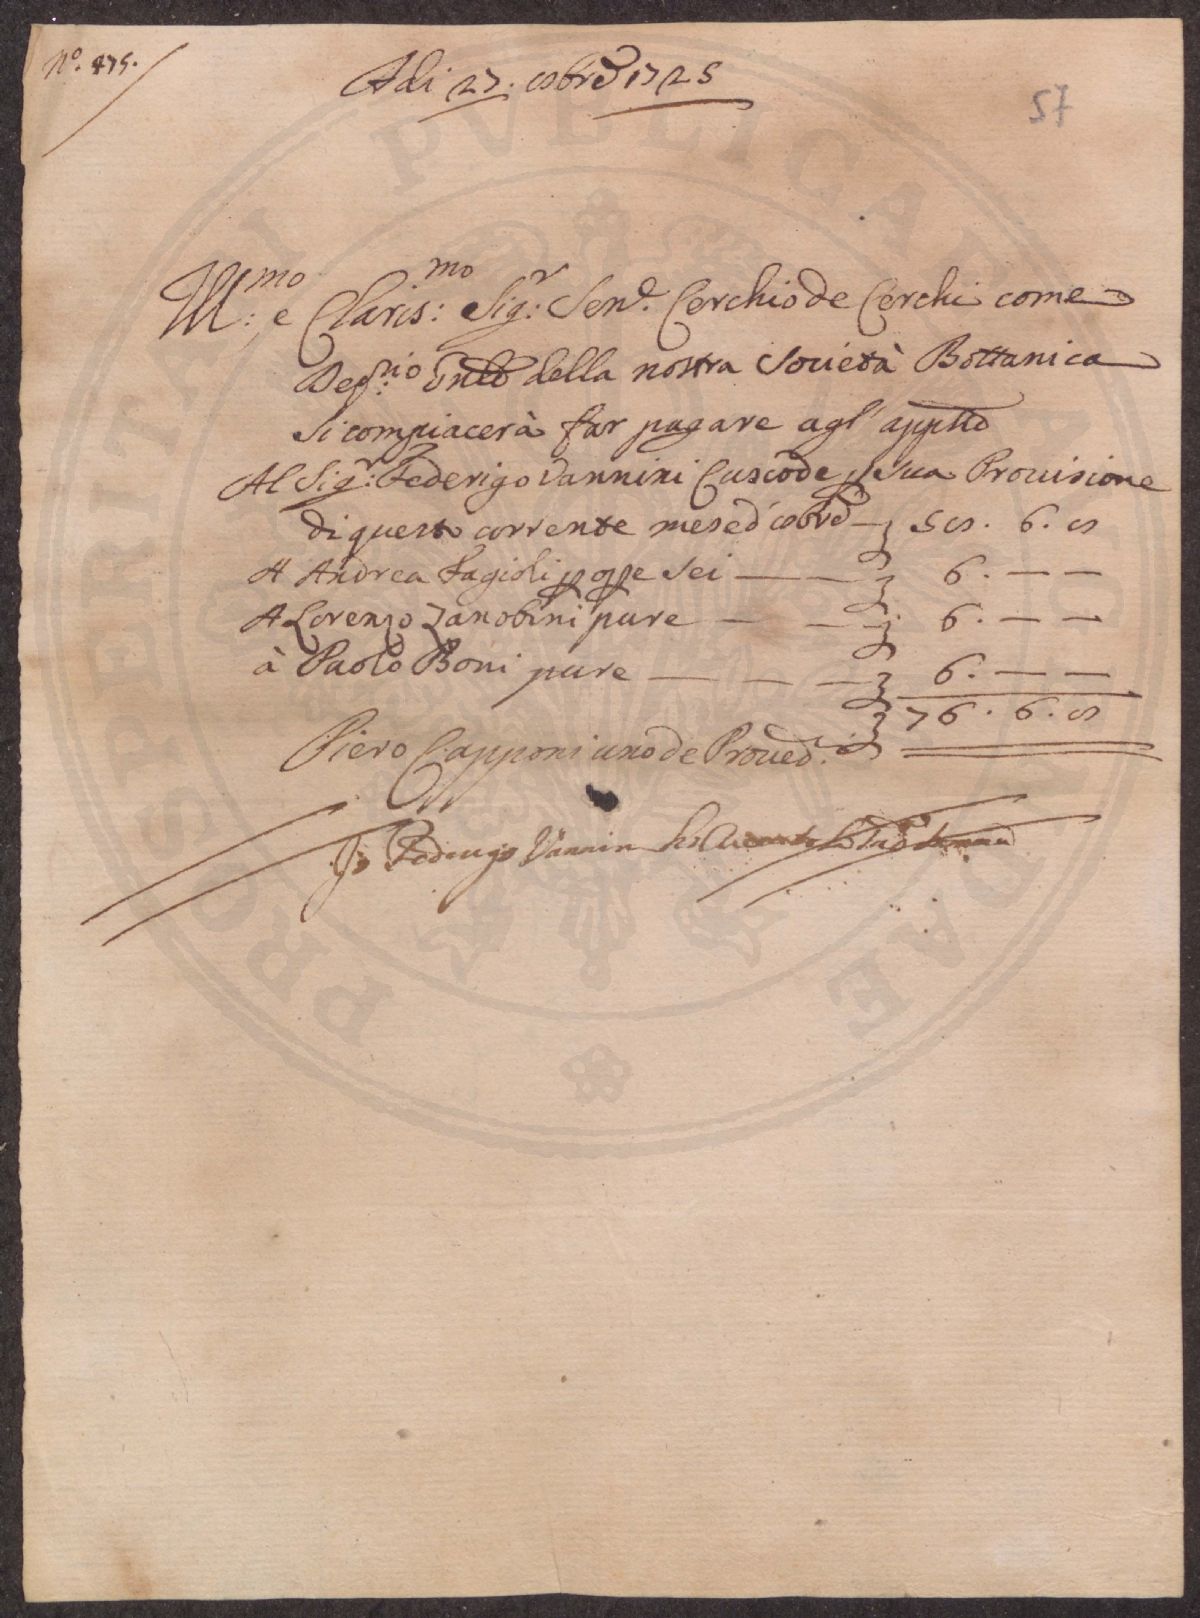 N.º 475.
Adi 27. 8bre 1725
57
Ill.mo e Claris.mo Sig.r Sen.e Cerchio de Cerchi come
Deg.mo della nostra Società Bottanica
si compiacerà far pagare agl' app.tti
Al Sig.r Federigo Vannini Custode p sua Provisione
di questo corrente mese d' 8bre — 58. 6. 8
A Andrea Fagioli p opre sei — — 6. — —
A Lorenzo Zanobini pure — — — 6. — —
à Paolo Boni pure — — — — 6. — —
76. 6. 8
Piero Capponi uno de Proved.i
Io Federigo Vannini ho
PROSPERITATI PVBLICAE AVGENDAE